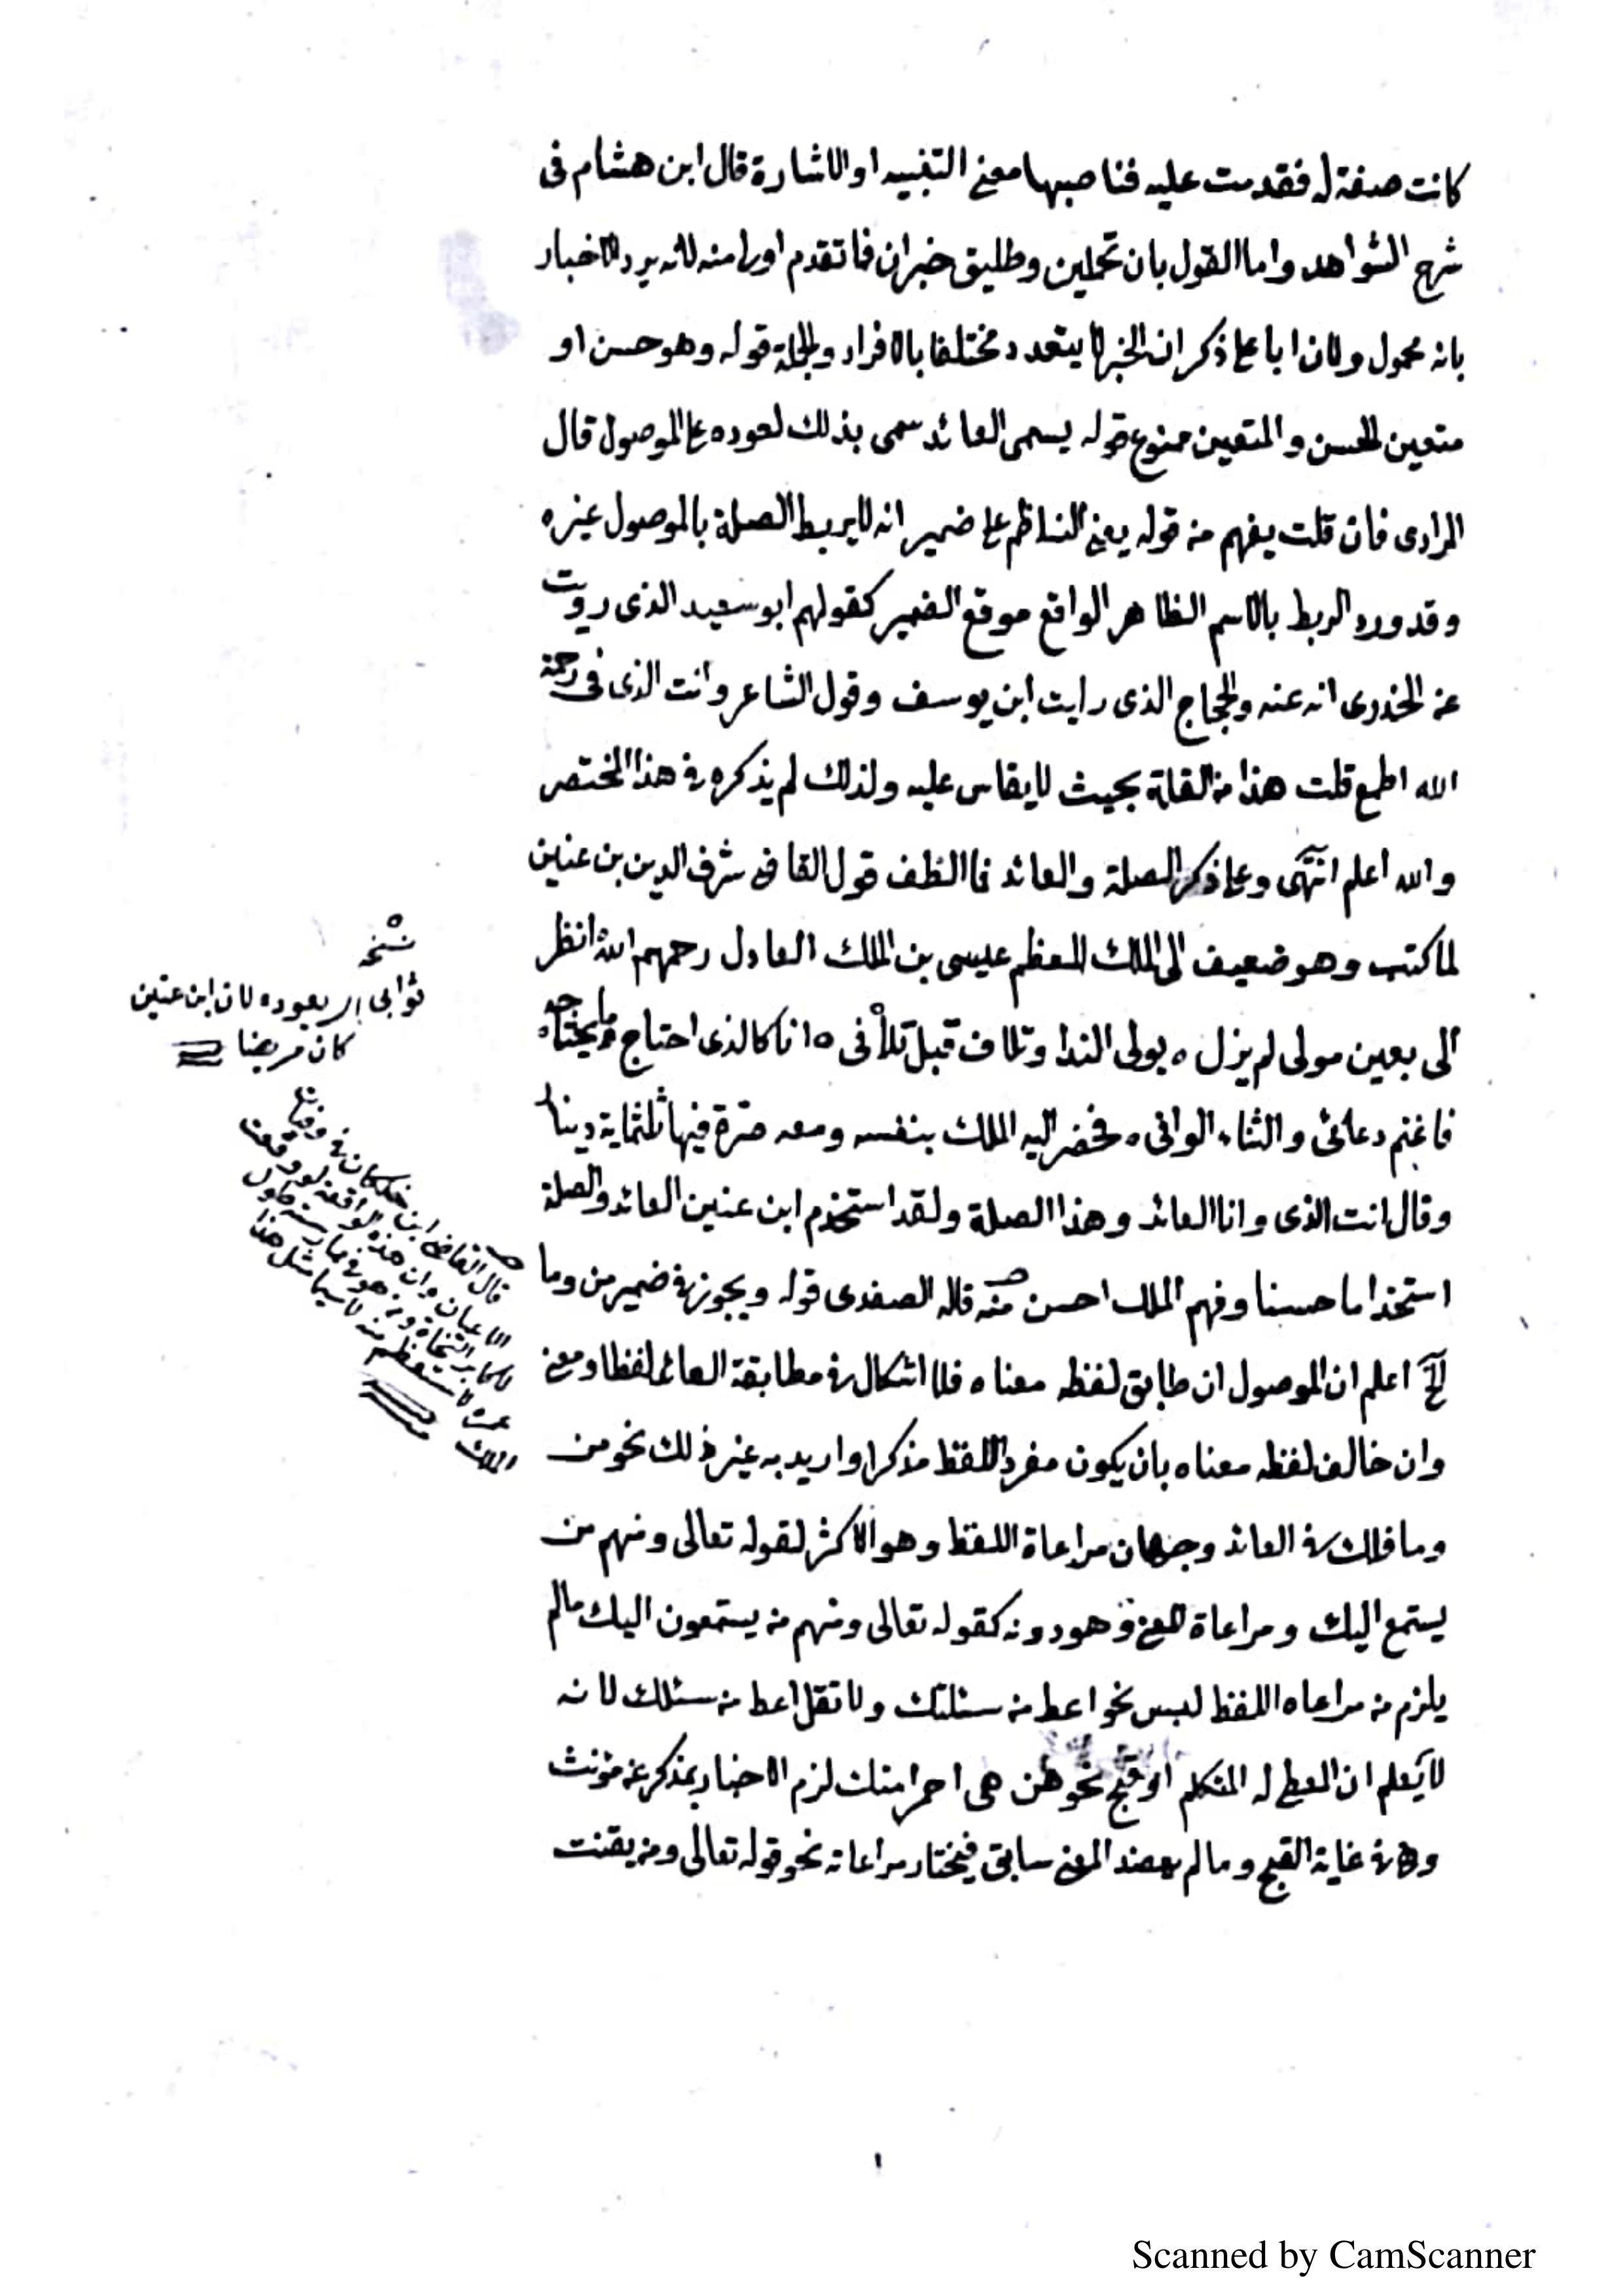 كانت صفة له فقدمت عليه فناصبها معنى التنبيه او الاشارة قال ابن هشام فى
شرح الشواهد واما القول بان تحملين وطليق خبران فما تقدم اولى منه لانه يرد الاخبار
بانه محمول ولان ابا على ذكر ان الخبر لا يتعدد مختلفا بالافراد والجملة قوله وهو حسن او
متعين الحسن والمتعين ممنوع قوله يسمى العائد سمى بذلك لعوده على الموصول قال
المرادى فان قلت يفهم من قوله يعنى الناظم على ضمير انه لا يربط الصلة بالموصول غيره
وقد ورد الربط بالاسم الظاهر الواقع موقع الضمير كقولهم ابو سعيد الذى رويت
عن الخدرى انه عنه والحجاج الذى رايت ابن يوسف وقول الشاعر وانت الذى فى رحمة
الله اطمع قلت هذا من القلة بحيث لا يقاس عليه ولذلك لم يذكره فى هذا المختصر
والله اعلم انتهى وعلى ذكر الصلة والعائد فما الظف قول القاضى شرف الدين بن عنين
لما كتب وهو ضعيف الى الملك المعظم عيسى بن الملك العادل رحمهم الله انظر
الى بعين مولى لم يزل ه يولى الندا وتلاف قبل تلافى ه انا كالذى احتاج ما يحتاجه
فاغنم دعائى والثناء الوافى ه فحضر اليه الملك بنفسه ومعه صرة فيها ثلثماية دينار
وقال انت الذى وانا العائد وهذا الصلة ولقد استخدم ابن عنين العائد والصلة
استخداما حسنا وفهم الملك احسن منه قاله الصفدى قوله ويجوز فى ضمير من وما
الخ اعلم ان الموصول ان طابق لفظه معناه فلا اشكال فى مطابقة العائد لفظا ومعنى
وان خالف لفظه معناه بان يكون مفرد اللفظ مذكرا واريد به غير ذلك نحو من
وما فلك فى العائد وجهان مراعاة اللفظ وهو الاكثر لقوله تعالى ومنهم من
يستمع اليك ومراعاة المعنى وهو دونه كقوله تعالى ومنهم من يستمعون اليك ما لم
يلزم من مراعاه اللفظ لبس نحو اعط من سئلتك ولا تقل اعط من سئلك لانه
لا يعلم ان المعطى له المتكلم او قبح نحو من هى احمر امتك لزم الاخبار بمذكر عن مؤنث
وهو فى غاية القبح وما لم يعضد المعنى سابق فيختار مراعاته نحو قوله تعالى ومن يقنت
نسخه
ثوابى اى بعوده لان ابن عنين
كان مريضا
قال القاضى ابن خلكان فى وفيات
الاعيان وان هذه الواقعة لو وقعت
لاكابر النحاة ومن هو فى ممارسته طول
عمره لاستعظم منه لا سيما مثل هذا
الملك
١
Scanned by CamScanner